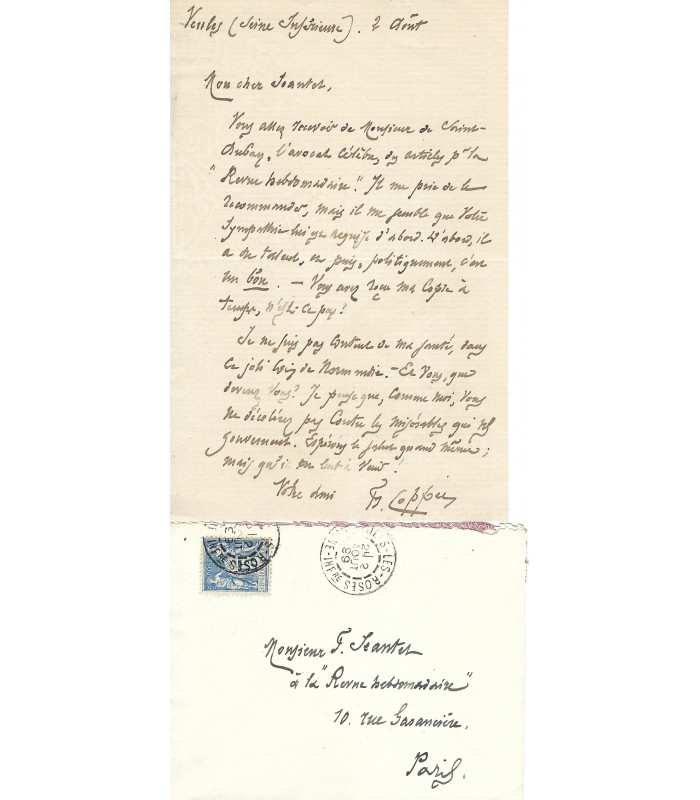 Veules (Seine Inférieure). 2 Août
Mon cher Jeantet,
Vous allez recevoir de Monsieur de Saint-
Auban, l'avocat célèbre, des articles pr la
"Revue hebdomadaire". Il me prie de le
recommander, mais il me semble que votre
sympathie lui est acquise d'abord. D'abord, il
a du talent, et puis, politiquement, c'est
un bon. – Vous avez reçu ma copie à
temps, n'est-ce pas?
Je ne suis pas content de ma santé, dans
ce joli coin de Normandie. – Et vous, que
devenez vous? Je pense que, comme moi, vous
ne décolérez pas contre les misérables qui nous
gouvernent. Espérons le salut quand même;
mais qu'il est lent à venir!
Votre ami F. Coppée
LES-ROSES
2 AOUT 99
NE-INFRE
Monsieur F. Jeantet
à la "Revue hebdomadaire"
10. rue Garancière,
Paris.